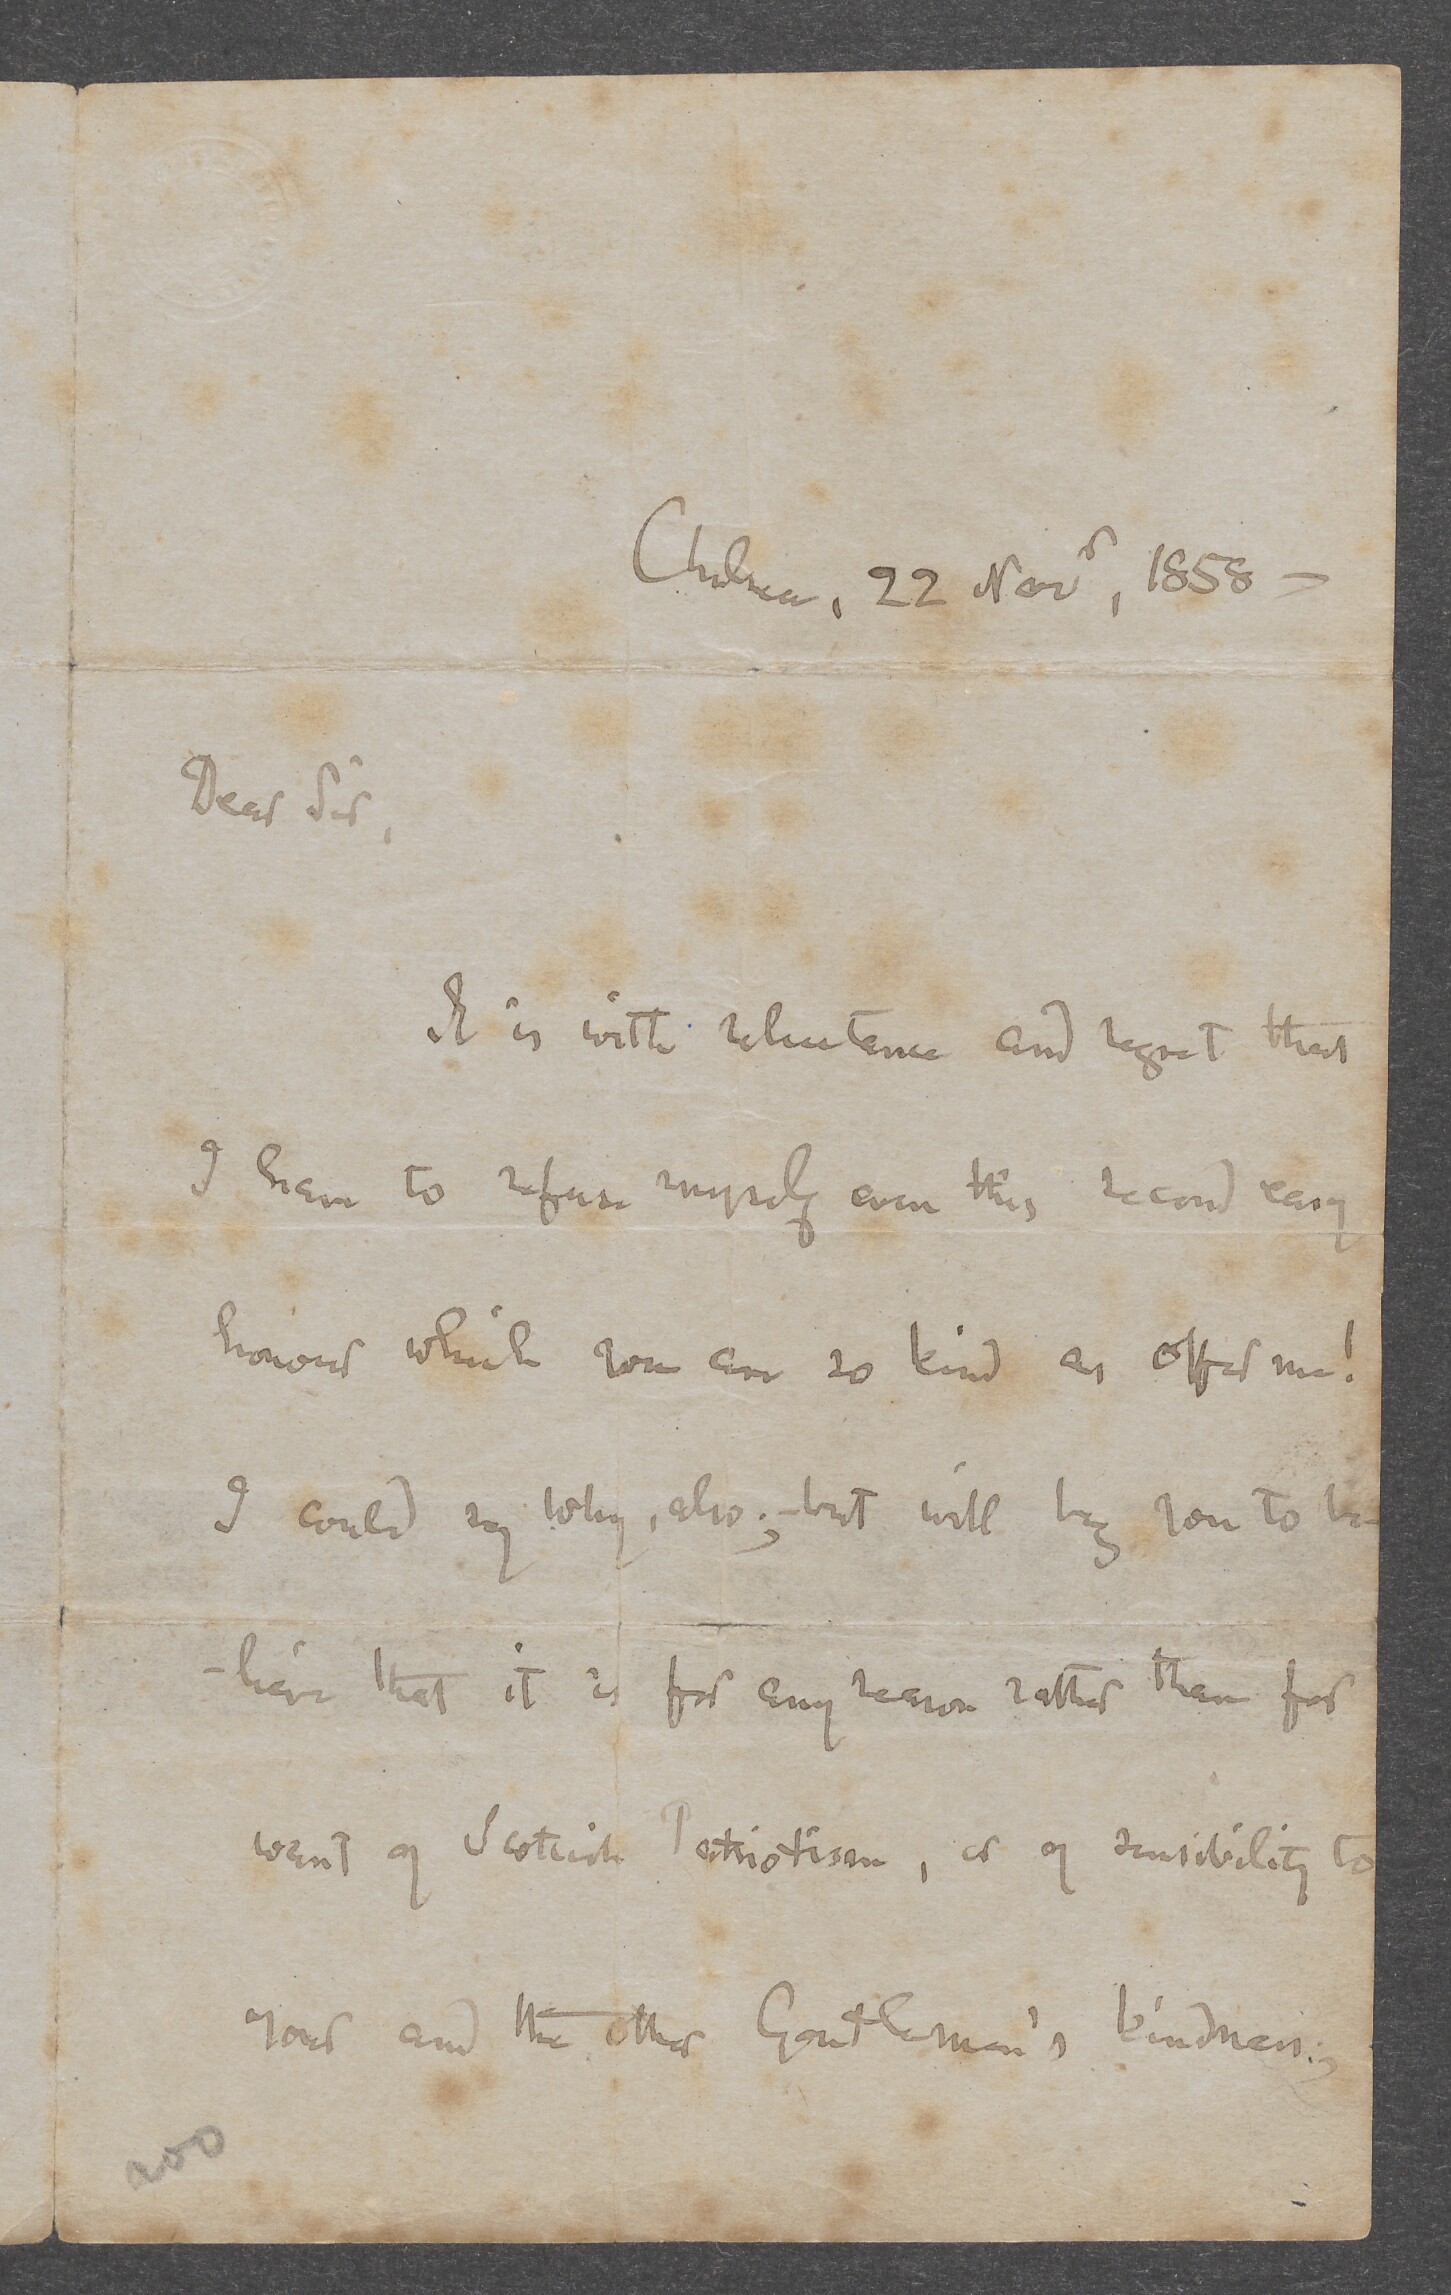 Chelsea, 22 Novr, 1858 –
Dear Sir,
It is with reluctance and regret that
I have to refuse myself even this second easy
honour which you are so kind as offer me!
I could say why, also; – but will beg you to be-
-lieve that it is for any reason rather than for
want of Scottish Patriotism, or of sensibility to
your and the other Gentlemen's kindness;
200